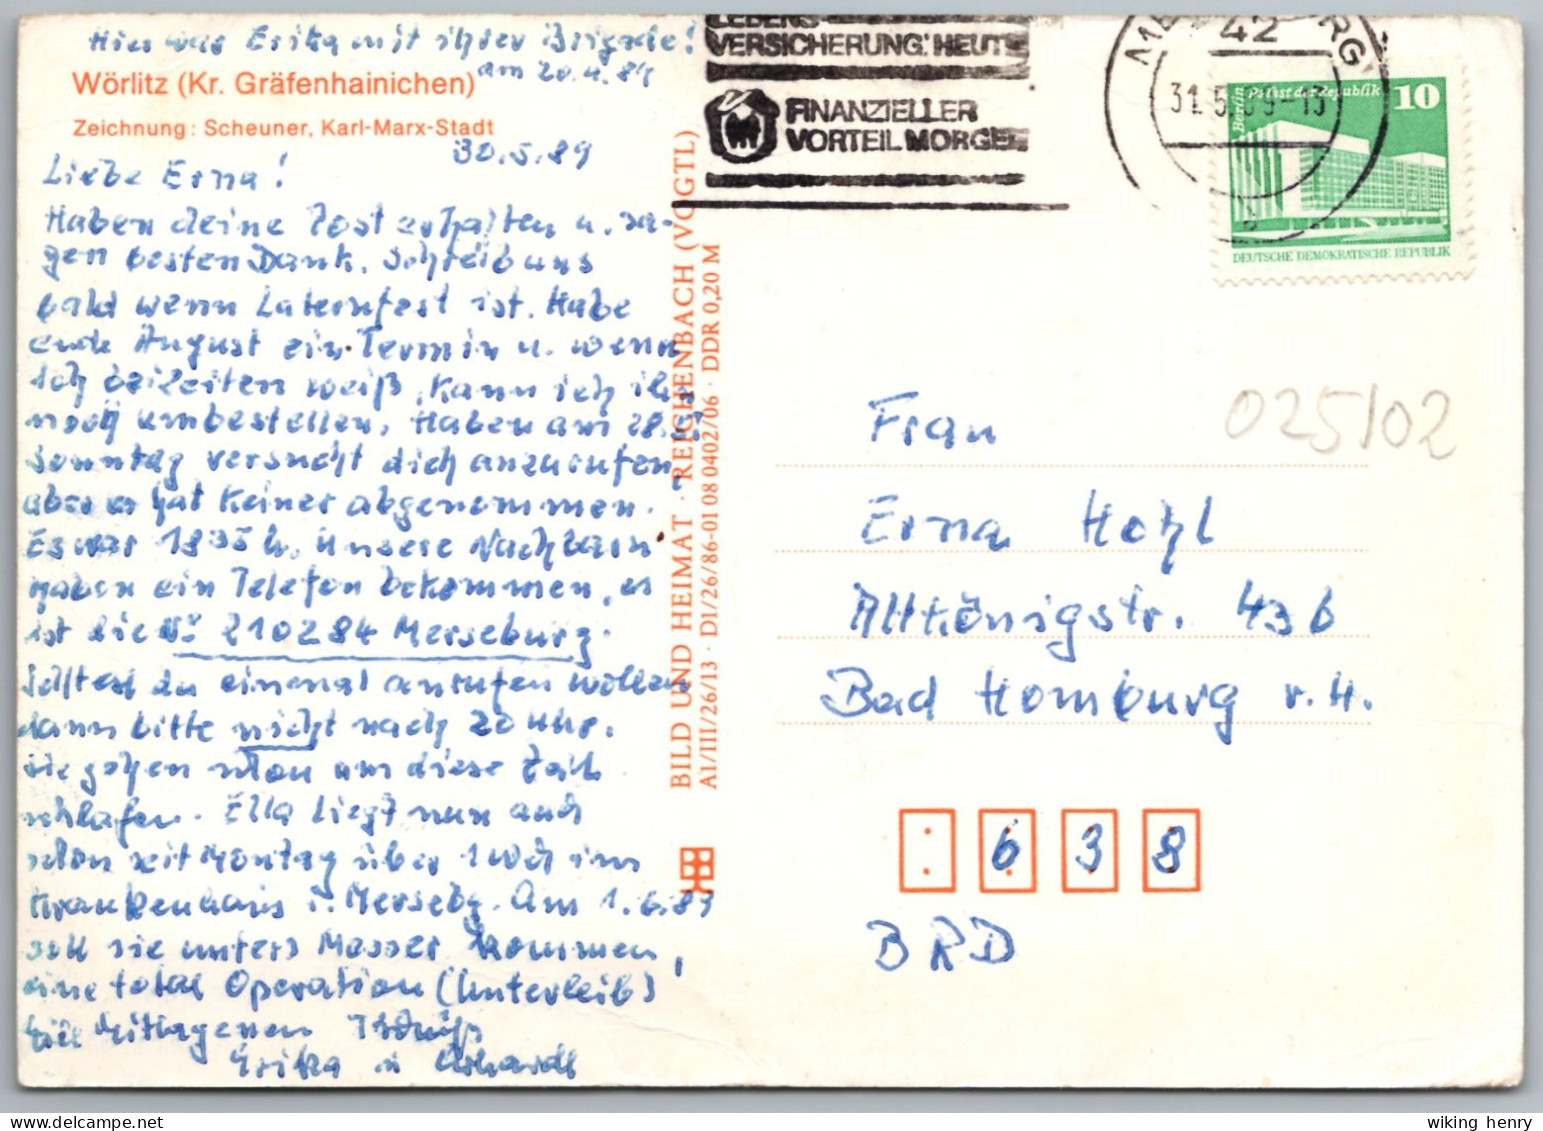 Hier war Erika mit ihrer Brigade!
am 20.4.89
Wörlitz (Kr. Gräfenhainichen)
Zeichnung: Scheuner, Karl-Marx-Stadt
30.5.89
Liebe Erna!
Haben deine Post erhalten u. sa-
gen besten Dank. Schreib uns
bald wenn Laternfest ist. Habe
ende August ein Termin u. wenn
ich beizeiten weiß, kann ich ihn
noch umbestellen. Haben am 28.5.
Sonntag versucht dich anzurufen,
aber es hat keiner abgenommen.
Es war 18 35 h. Unsere Nachbarn
haben ein Telefon bekommen, es
ist die Nr 210284 Merseburg.
Solltest du einmal anrufen wollen
dann bitte nicht nach 20 Uhr.
Sie gehen schon um diese Zeit
schlafen. Ella liegt nun auch
schon seit Montag über 1 Woch im
Krankenhaus i. Mersebg. Am 1.6.89
soll sie unters Messer kommen,
eine total Operation (Unterleib)
Erika u
BILD UND HEIMAT · REICHENBACH (VOGTL)
A1/III/26/13 · D1/26/86-01 08 0402/06 · DDR 0,20 M
LEBENS-
VERSICHERUNG: HEUTE
FINANZIELLER
VORTEIL MORGEN
42
31.5.89-13
Berlin Palast der Republik 10
DEUTSCHE DEMOKRATISCHE REPUBLIK
025/02
Frau
Erna Hohl
Altkönigstr. 43b
Bad Homburg v.H.
638
BRD
wiking henry